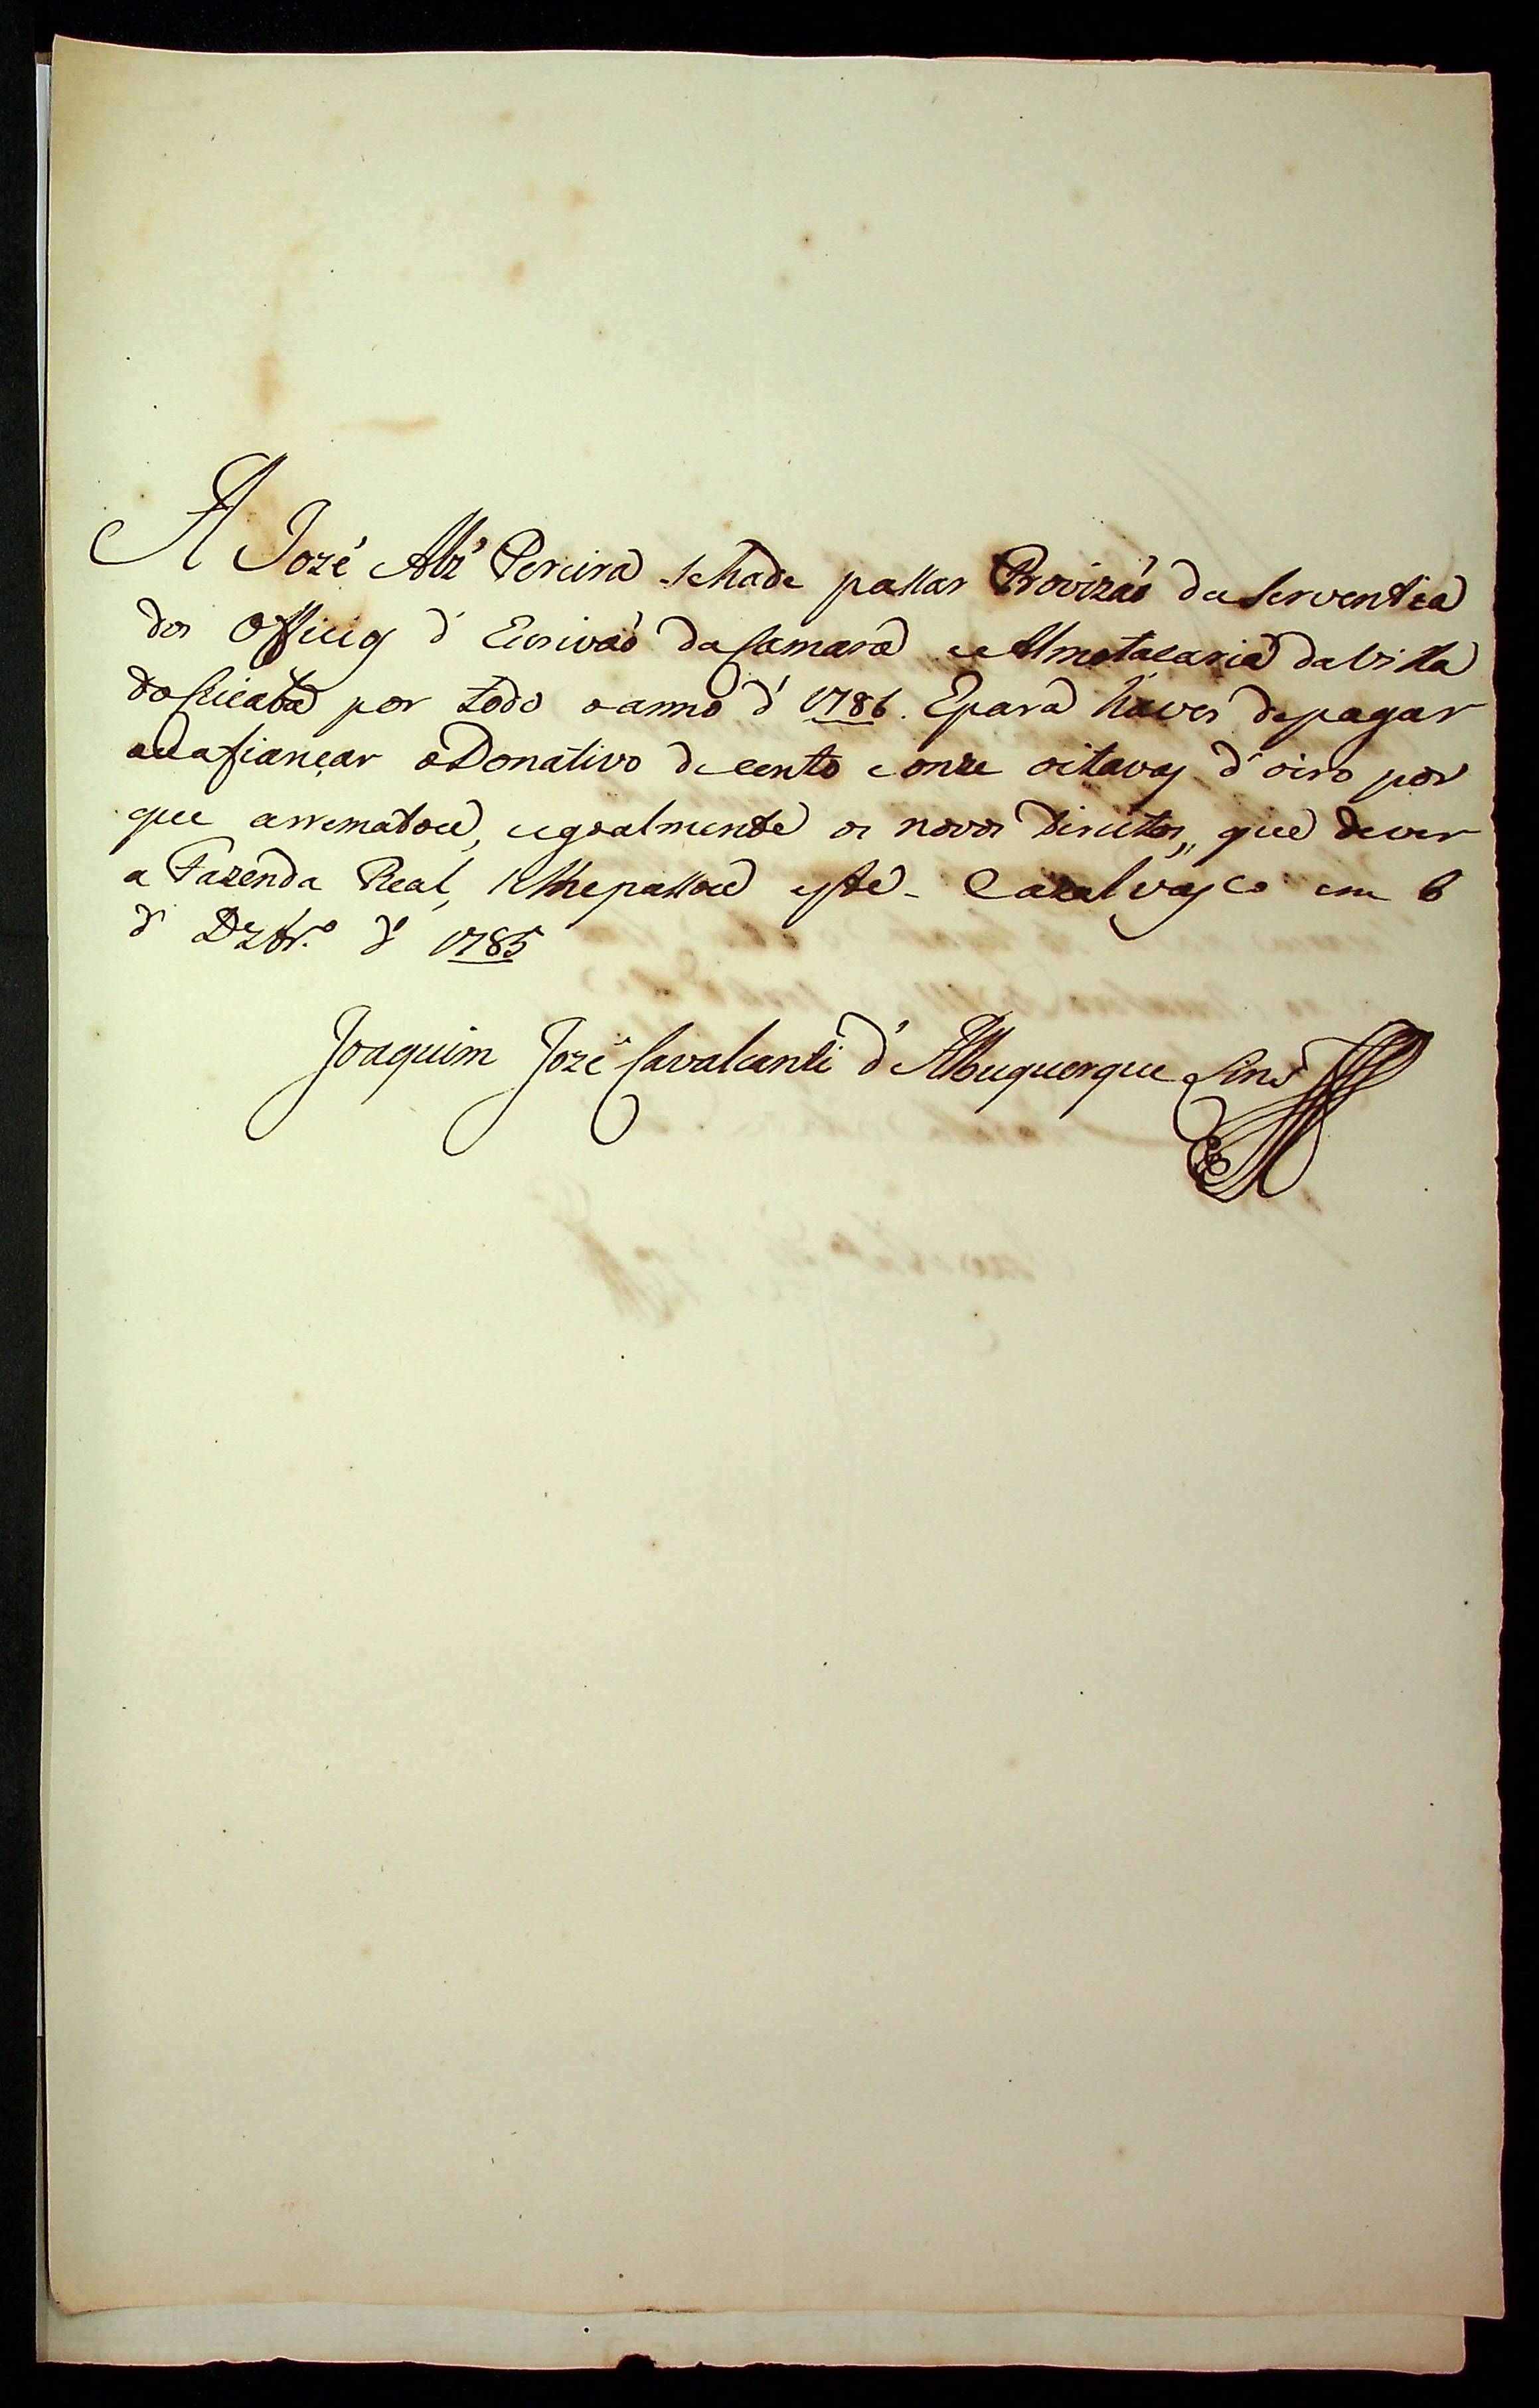 A Jozé Alz' Pereira se hade passar Provizaõ da Serventia
dos Officios d' Escrivaõ da Camara e Almotacaria da Villa
do Cuiabá por todo o anno d' 1786. E para haver de pagar
ou afiançar o Donativo de cento e onze oitavas d' oiro por
que arrematou, e egoalmente os novos Direitos, que dever
a Fazenda Real, se lhe passou este - Cazalvasco em 6
d' Dzbr.º d' 1785
Joaquim Jozé Cavalcanti d' Albuquerque Lins